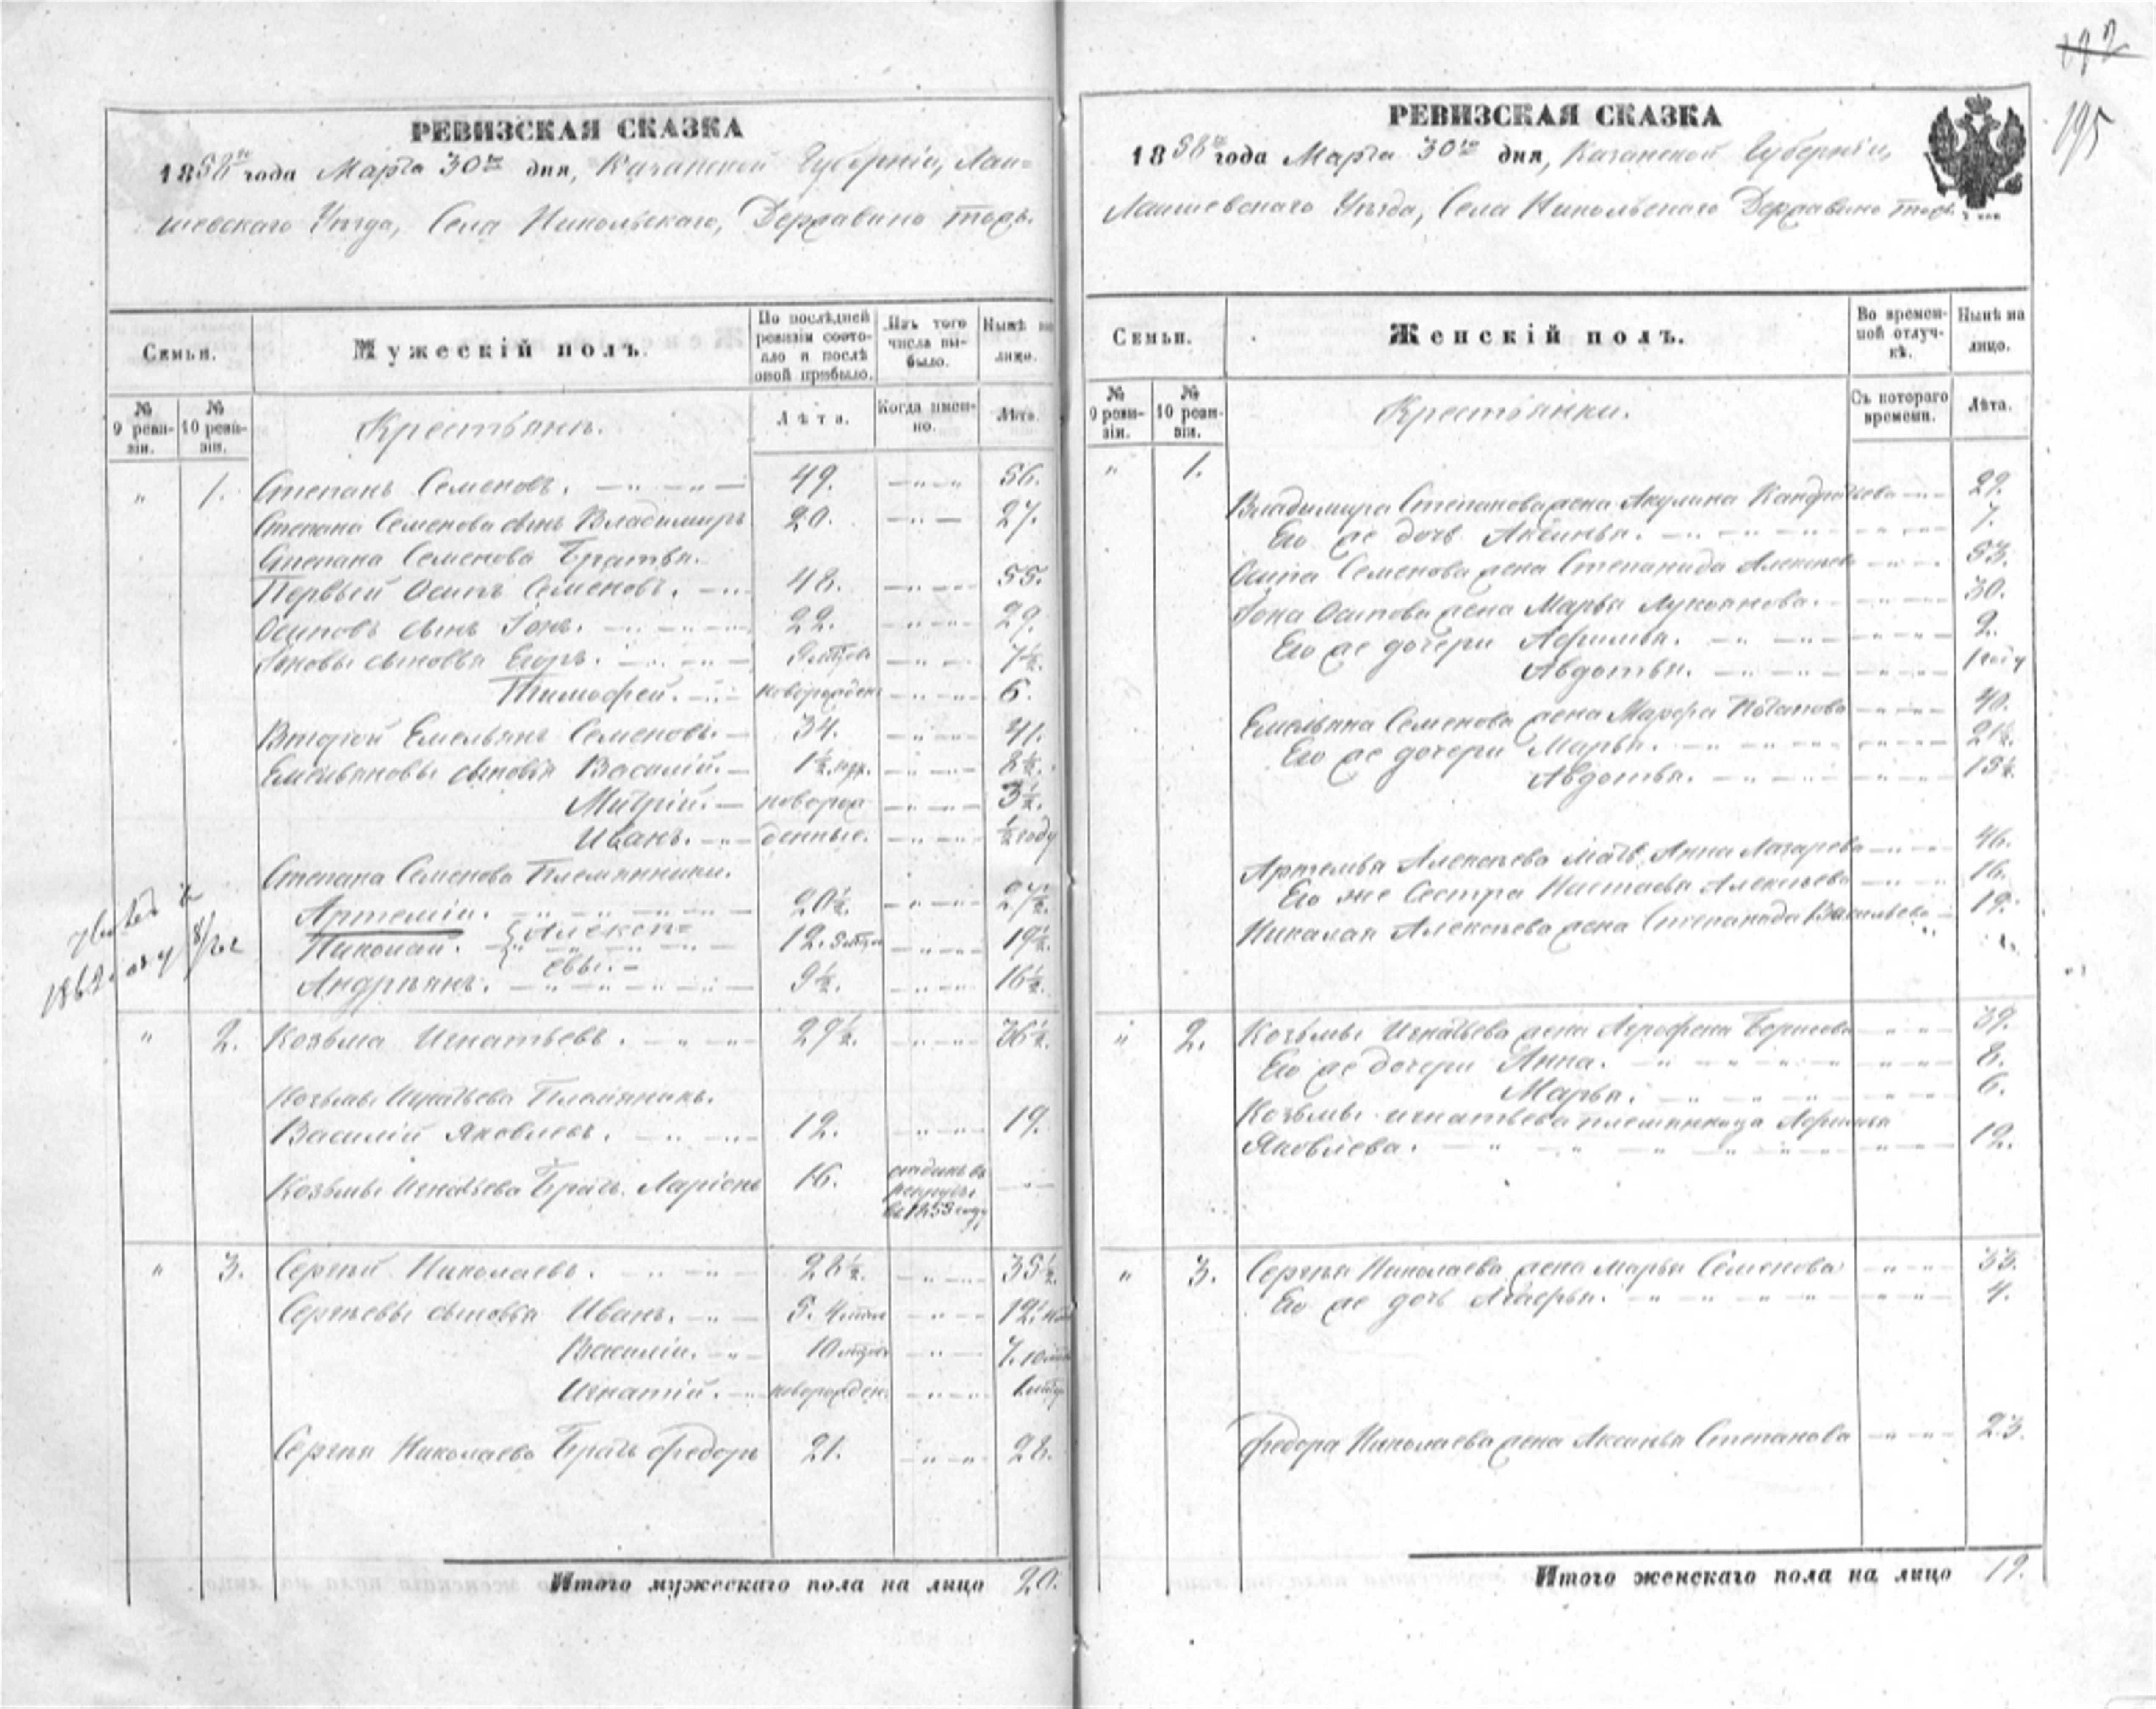 192
195
РЕВИЗСКАЯ СКАЗКА
1858го года Марта 30го дня, Казанской Губерніи, Лаи=
шевскаго Уѣзда, Села Никольскаго, Державино тожъ.
Семьи.
Мужескій полъ.
По послѣдней ревизіи состояло и послѣ оной прибыло.
Изъ того числа выбыло.
Нынѣ на лицо.
№ 9 ревизіи.
№ 10 ревизіи.
Крестьянъ.
Лѣта.
Когда именно.
Лѣта.
" 1. Степанъ Семеновъ. 49. 56.
Степана Семенова сынъ Владимиръ 20. 27.
Степана Семенова Братья.
Первый Осипъ Семеновъ. 48. 55.
Осиповъ сынъ Іонъ. 22. 29.
Іоновы сыновья Егоръ. 7½.
Тимофей. новорожден 6.
Второй Емельянъ Семеновъ. 34. 41.
Емельяновы сыновья Василій. 1½ 8½.
Митрій. новорож 3½.
Иванъ. денные. ½ году
Степана Семенова Племянники.
Артемій. 20½. 27½.
Алексѣ=
Николай. 12. 19½.
евы.
Андріянъ. 9½. 16½.
1862
" 2. Козьма Игнатьевъ. 29½. 36½.
Козьмы Игнатьева Племянникъ.
Василій Яковлевъ. 12. 19.
Козьмы Игнатьева Братъ Ларіонъ 16. отданъ въ рекруты въ 1855 году
" 3. Сергѣй Николаевъ. 28½. 35½.
Сергѣевы сыновья Иванъ. 5. 12.
Василій. 10 7. 10
Игнатій. новорожден.
Сергѣя Николаева Братъ Федоръ 21. 28.
Итого мужескаго пола на лицо 20.
РЕВИЗСКАЯ СКАЗКА
1858го года Марта 30го дня, Казанской Губерніи,
Лаишевскаго Уѣзда, Села Никольскаго Державино тожъ.
Семьи.
Женскій полъ.
Во временной отлучкѣ.
Нынѣ на лицо.
№ 9 ревизіи.
№ 10 ревизіи.
Крестьянки.
Съ котораго времени.
Лѣта.
" 1.
Владимира Степанова жена Акулина Кандратьева 29.
Его же дочь Аксинья. 7.
Осипа Семенова жена Степанида Алексѣева 53.
Іона Осипова жена Марья Лукоянова. 30.
Его же дочери Афимья. 9.
Авдотья. 1 году
Емельяна Семенова жена Марфа Потапова 40.
Его же дочери Марья. 21½.
Авдотья. 15½.
Артемья Алексѣева мать Анна Лазарева 46.
Его же Сестра Настасья Алексѣева 16.
Николая Алексѣева жена Степанида Васильева 19.
" 2. Козьмы Игнатьева жена Агрофена Борисова 39.
Его же дочери Анна. 8.
Марья. 6.
Козьмы Игнатьева племянница Афимья
Яковлева. 12.
" 3. Сергѣя Николаева жена Марья Семенова 33.
Его же дочь Агафья. 4.
Федора Николаева жена Аксинья Степанова 23.
Итого женскаго пола на лицо 19.